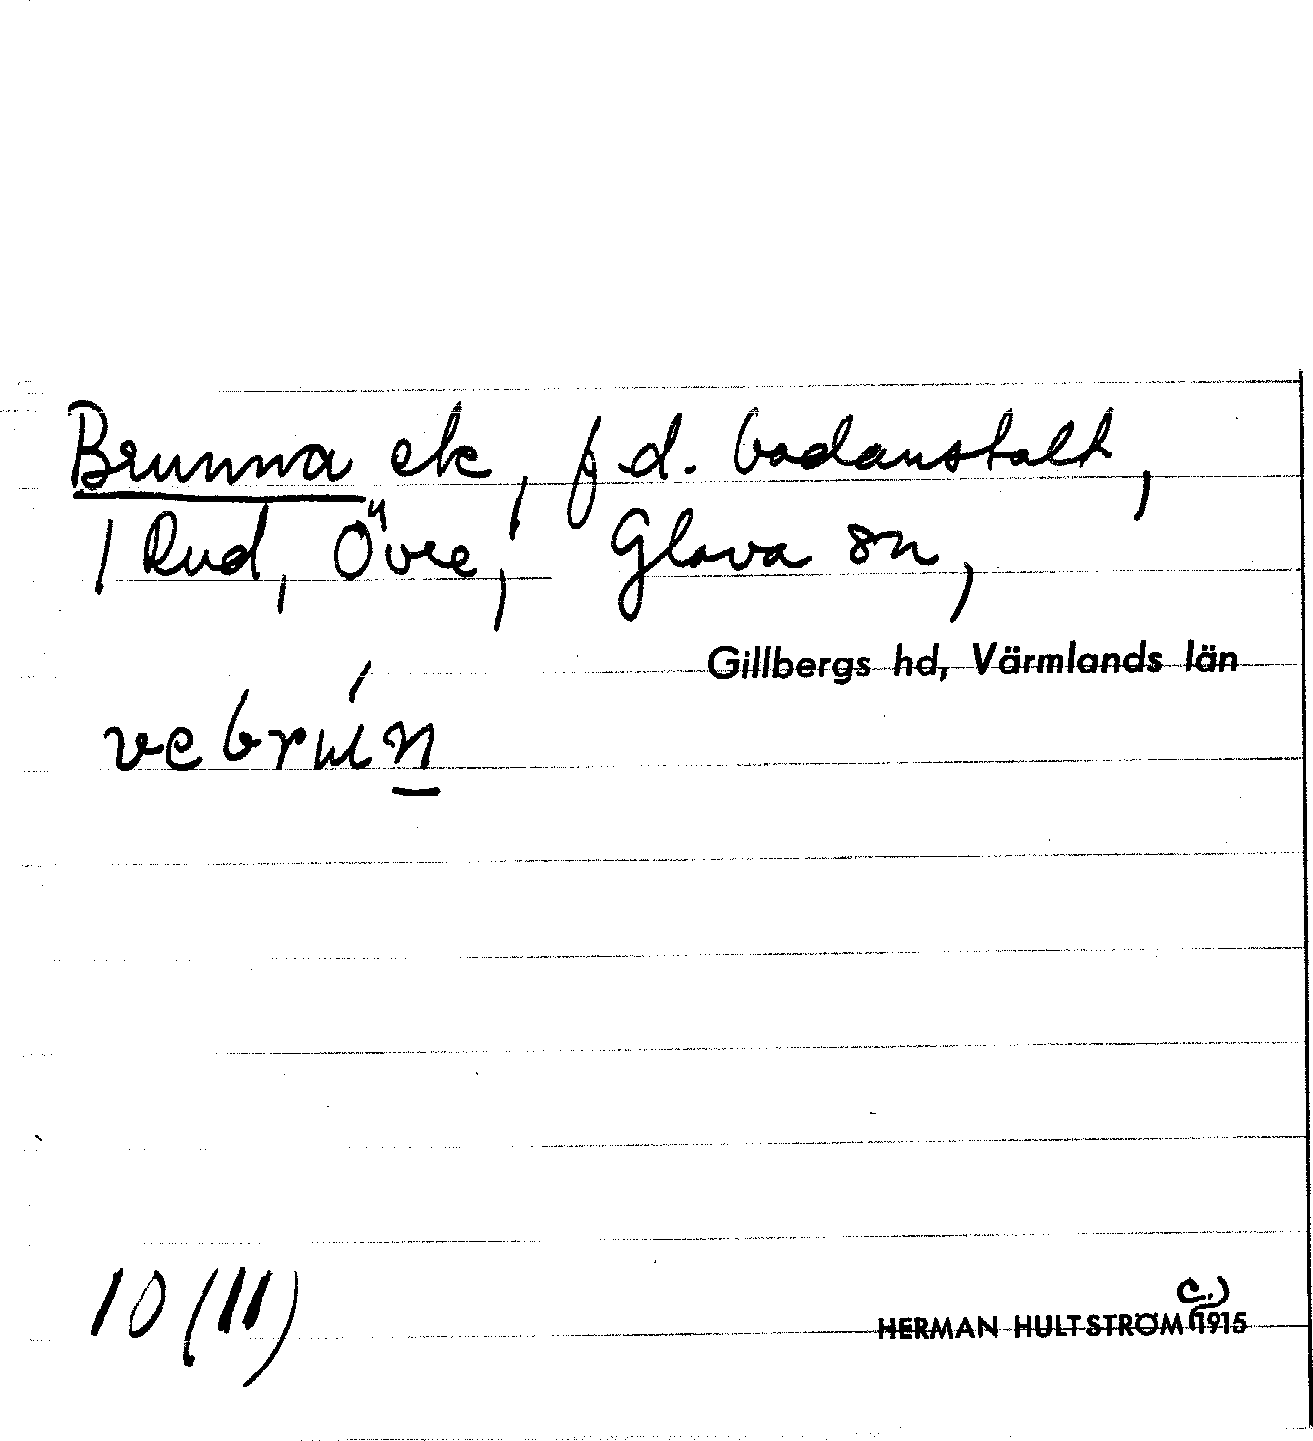 Brunna ek, f.d. badanstalt,
/ Rud, Övre, Glava sn,
Gillbergs hd, Värmlands län
ve brún
10 (11)
c.)
HERMAN HULTSTRÖM (1915